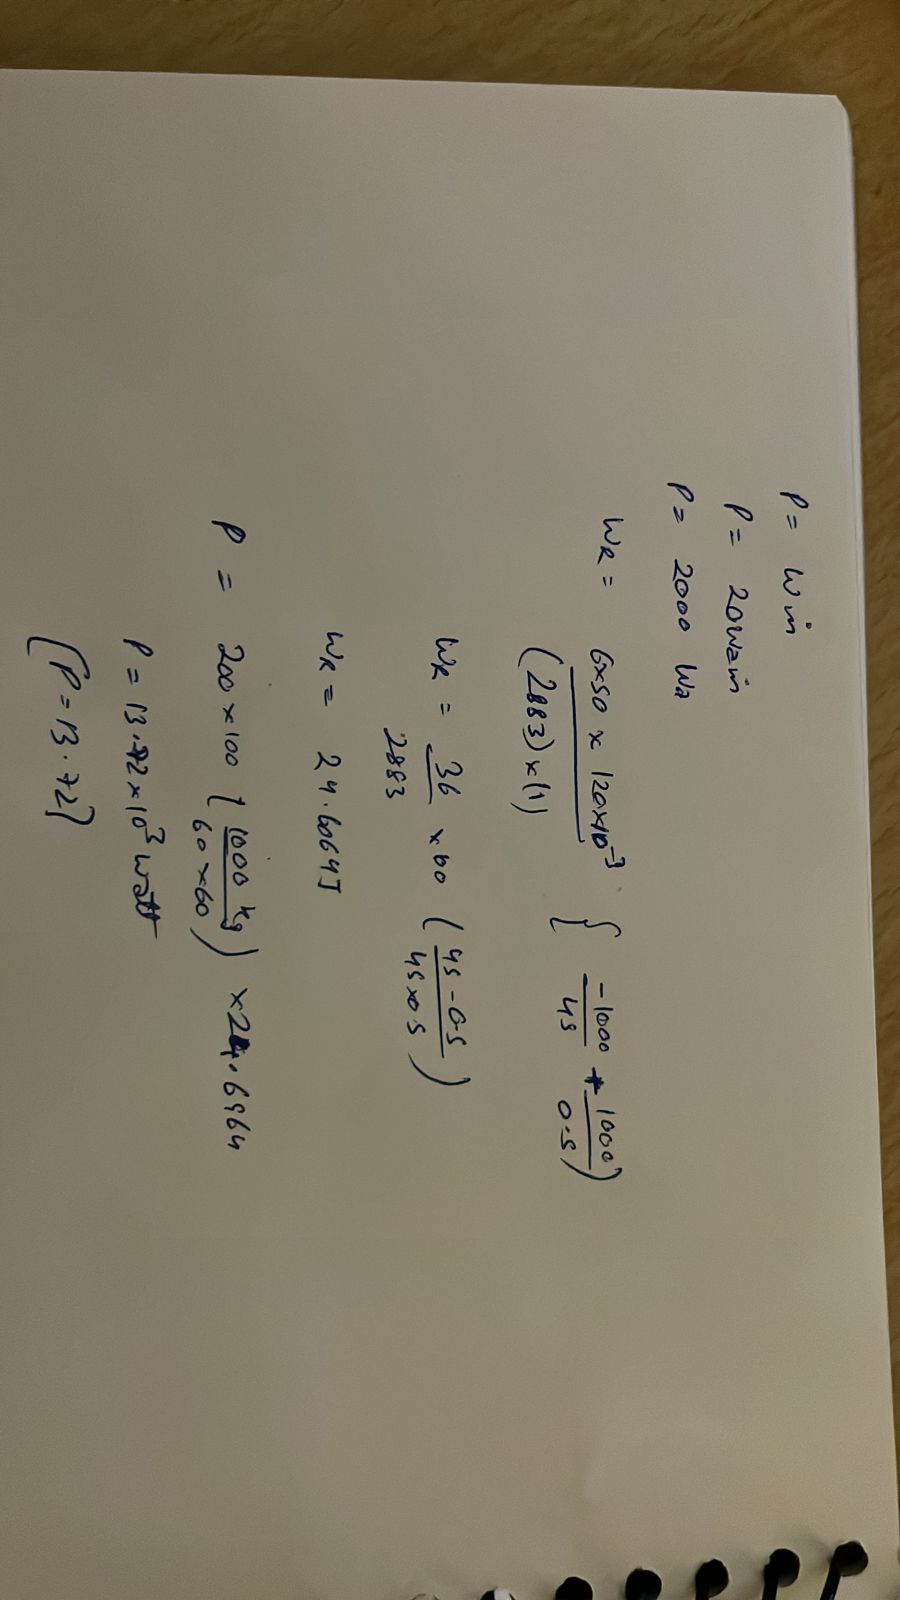 P = Wṁ
P = 20Waṁ
P = 2000 Wa
WR = 6x50 x 120x10⁻³ / (2883) x (1) { -1000/45 + 1000/0.5 )
WR = 36/2883 x 60 ( 45 - 0.5 / 45 x 0.5 )
WR = 24.6064J
P = 200 x 100 ( 1000 kg / 60 x 60 ) x 24.6964
P = 13.72 x 10³ watt
[P = 13.72]